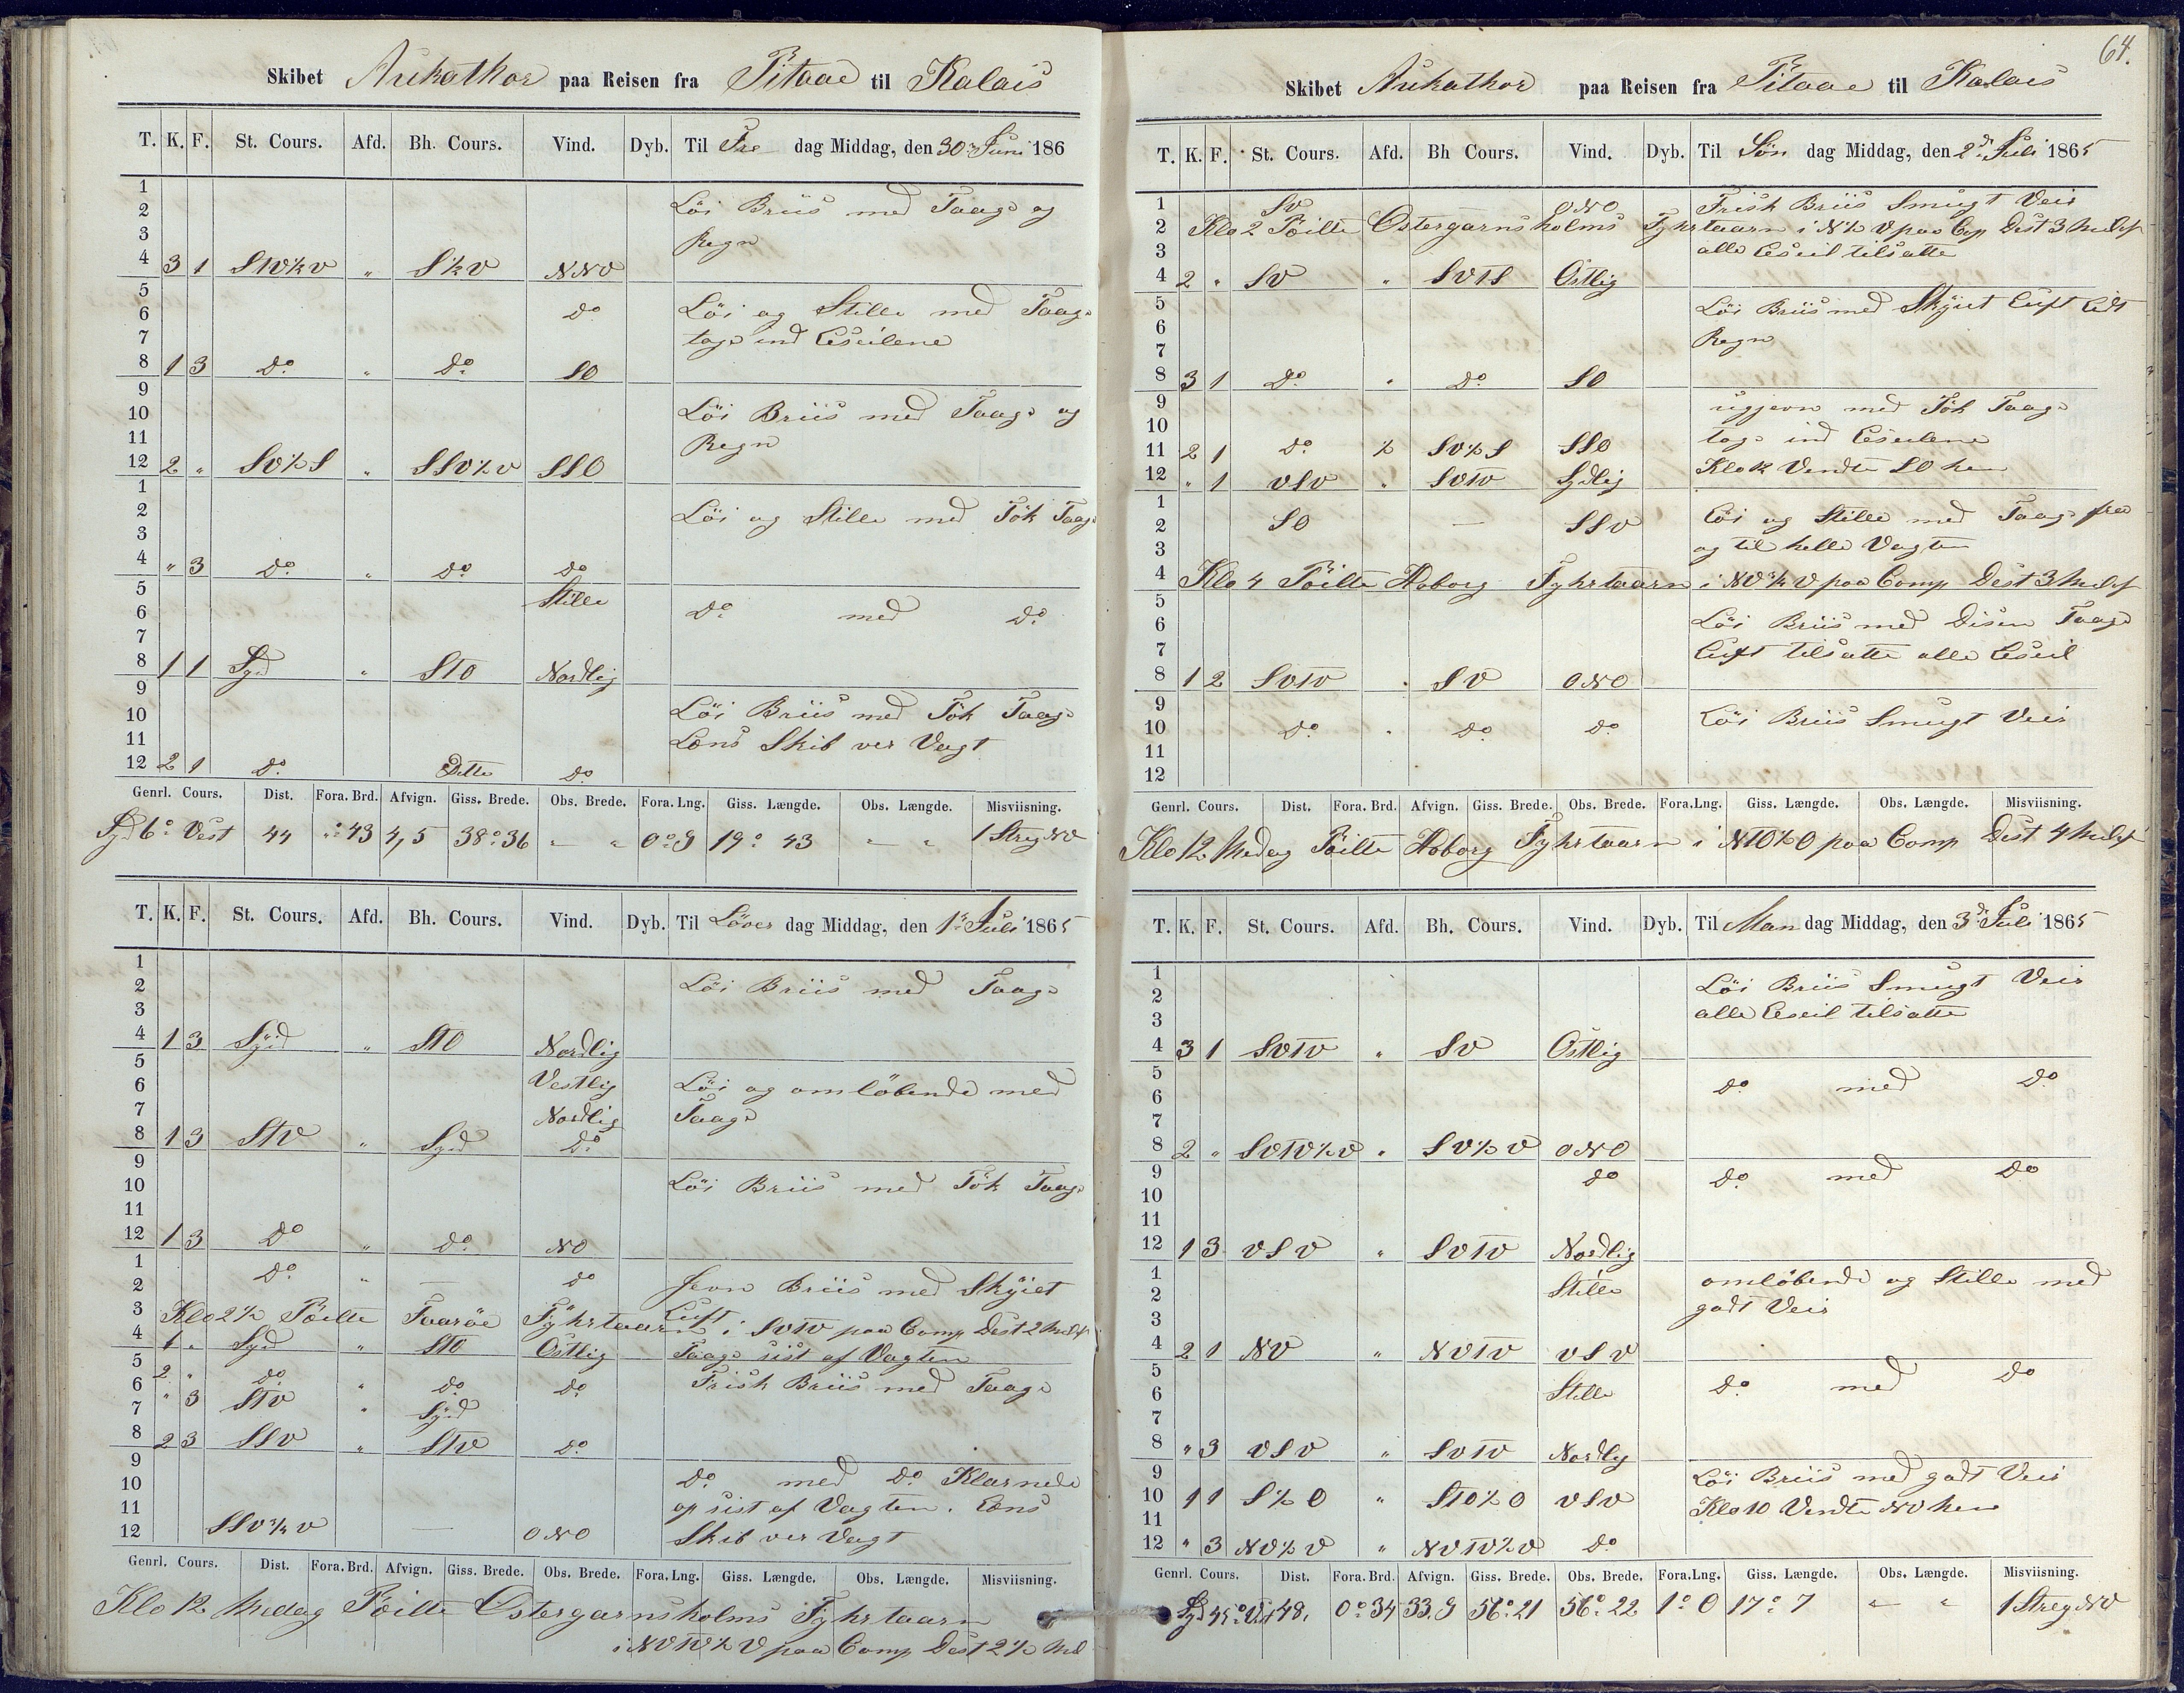 Skibet Aukathor paa Reisen fra Pitaae til Kalais
T. K. F. St. Cours. Afd. Bh. Cours. Vind. Dyb. Til Fre dag Middag, den 30te Juni 186
1
2 Löi Briis med Taage og
3 Regn
4 3 1 StV½V " S½V NNV
5
6 Do Löi og Stille med Taage
7 tage ind Leseilene
8 1 3 Do " Do SO
9
10 Löi Briis med Taage og
11 Regn
12 2 " SV½S " SSV½V SSO
1
2 Löi og Stille med Tök Taage
3
4 " 3 Do " Do Do
5 Stille
6 Do med Do
7
8 1 1 Syd " StO Nordlig
9
10 Löi Briis med Tök Taage
11 Læns Skib ver Vagt
12 2 1 Do Ditto Do
Genrl. Cours. Dist. Fora. Brd. Afvign. Giss. Brede. Obs. Brede. Fora. Lng. Giss. Længde. Obs. Længde. Misviisning.
Syd 6° Vest 44 "°43 4,5 38°36 " " 0°9 19° 43 " " 1 Streg NV
T. K. F. St. Cours. Afd. Bh. Cours. Vind. Dyb. Til Löver dag Middag, den 1te Juli 1865
1
2 Löi Briis med Taage
3
4 1 3 Syd " StO Nordlig
5
6 Vestlig Löi og omlöbende med
7 Nordlig Taage
8 1 3 StV " Syd Do
9
10 Löi Briis med Tök Taage
11
12 1 3 Do " Do NO
1
2 Do " — Do Jevn Briis med Skÿiet
Luft
3 Klo 2½ Pöilte Faaröe Fÿhrtaarn i SVtV paa Comp Dest 2 Mil
4 1 " Syd " StO Östlig Taage sist af Vagten
5 2 " Do " Do Do Frisk Briis med Taage
6 " 3 StV " Syd
7
8 2 3 SSV " StV Do
9
10 Do med Do Klarnede
11 op sist af Vagten. Læns
12 SSV¾V — ONO Skib ver Vagt
Genrl. Cours. Dist. Fora. Brd. Afvign. Giss. Brede. Obs. Brede. Fora. Lng. Giss. Længde. Obs. Længde. Misviisning.
Klo 12 Medag Pöilte Östergarnsholms Fyhrtaarn
i NVtV½V paa Comp Dest 2½ Mil
64.
Skibet Aukathor paa Reisen fra Pitaae til Kalais
T. K. F. St. Cours. Afd. Bh Cours. Vind. Dyb. Til Sön dag Middag, den 2de Juli 1865
1 SV ONO Frisk Briis Smugt Veir
2 Klo 2 Pöilte Östergarnsholms Fyhrtaarn i N½V paa Cop Dest 3 Mil
3 alle Leseil tilsatte
4 2 " SV " SVtS Östlig
5
6 Löi Briis med Skÿiet Luft Lidt
7 Regn
8 3 1 Do " Do SO
9
10 ugjevn med Tök Taage
11 2 1 Do ½ SV½S SSO tage ind Leseilene
12 " 1 VSV " SVtV Sydlig Klo 12 Vendte SO hen
1
2 SO — SSV Löi og Stille med Taage fra
3 og til helle Vagten
4 Klo 4 Pöilte Hoborg Fyhrtaarn i NV¾V paa Comp Dest 3 Mil
5
6 Löi Briis med Disen Taage
7 Luft tilsatte alle Leseil
8 1 2 SVtV " SV ONO
9
10 Do " Do Do Löi Briis Smugt Veir
11
12
Genrl. Cours. Dist. Fora. Brd. Afvign. Giss. Brede. Obs. Brede. Fora.Lng. Giss. Længde. Obs. Længde. Misviisning.
Klo 12 Medag Pöilte Hoborg Fyhrtaarn i NtO½O paa Comp Dest 4 Mil
T. K. F. St. Cours. Afd. Bh. Cours. Vind. Dyb. Til Man dag Middag, den 3de Juli 1865
1
2 Löi Briis Smugt Veir
3 alle Leseil tilsatte
4 3 1 SVtV " SV Östlig
5
6 Do med Do
7
8 2 " SVtV½V " SV½V ONO
9 Do Do med Do
10
11
12 1 3 VSV " SVtV Nordlig
1
2 Stille omlöbende og Stille med
3 godt Veir
4 2 1 NV " NVtV VSV
5
6 Stille Do med Do
7
8 " 3 VSV " SVtV Nordlig
9 Löi Briis med godt Veir
10 1 1 S½O " StO½O VSV Klo 10 Vendte NV hen
11
12 " 3 NV½V " NVtV½V Do
Genrl. Cours. Dist. Fora. Brd. Afvign. Giss. Brede. Obs. Brede. Fora.Lng. Giss. Længde. Obs. Længde. Misviisning.
Syd 45° Vst 48, 0°34 33,9 56°21 56°22 1°0 17°7 " " 1 Streg NV